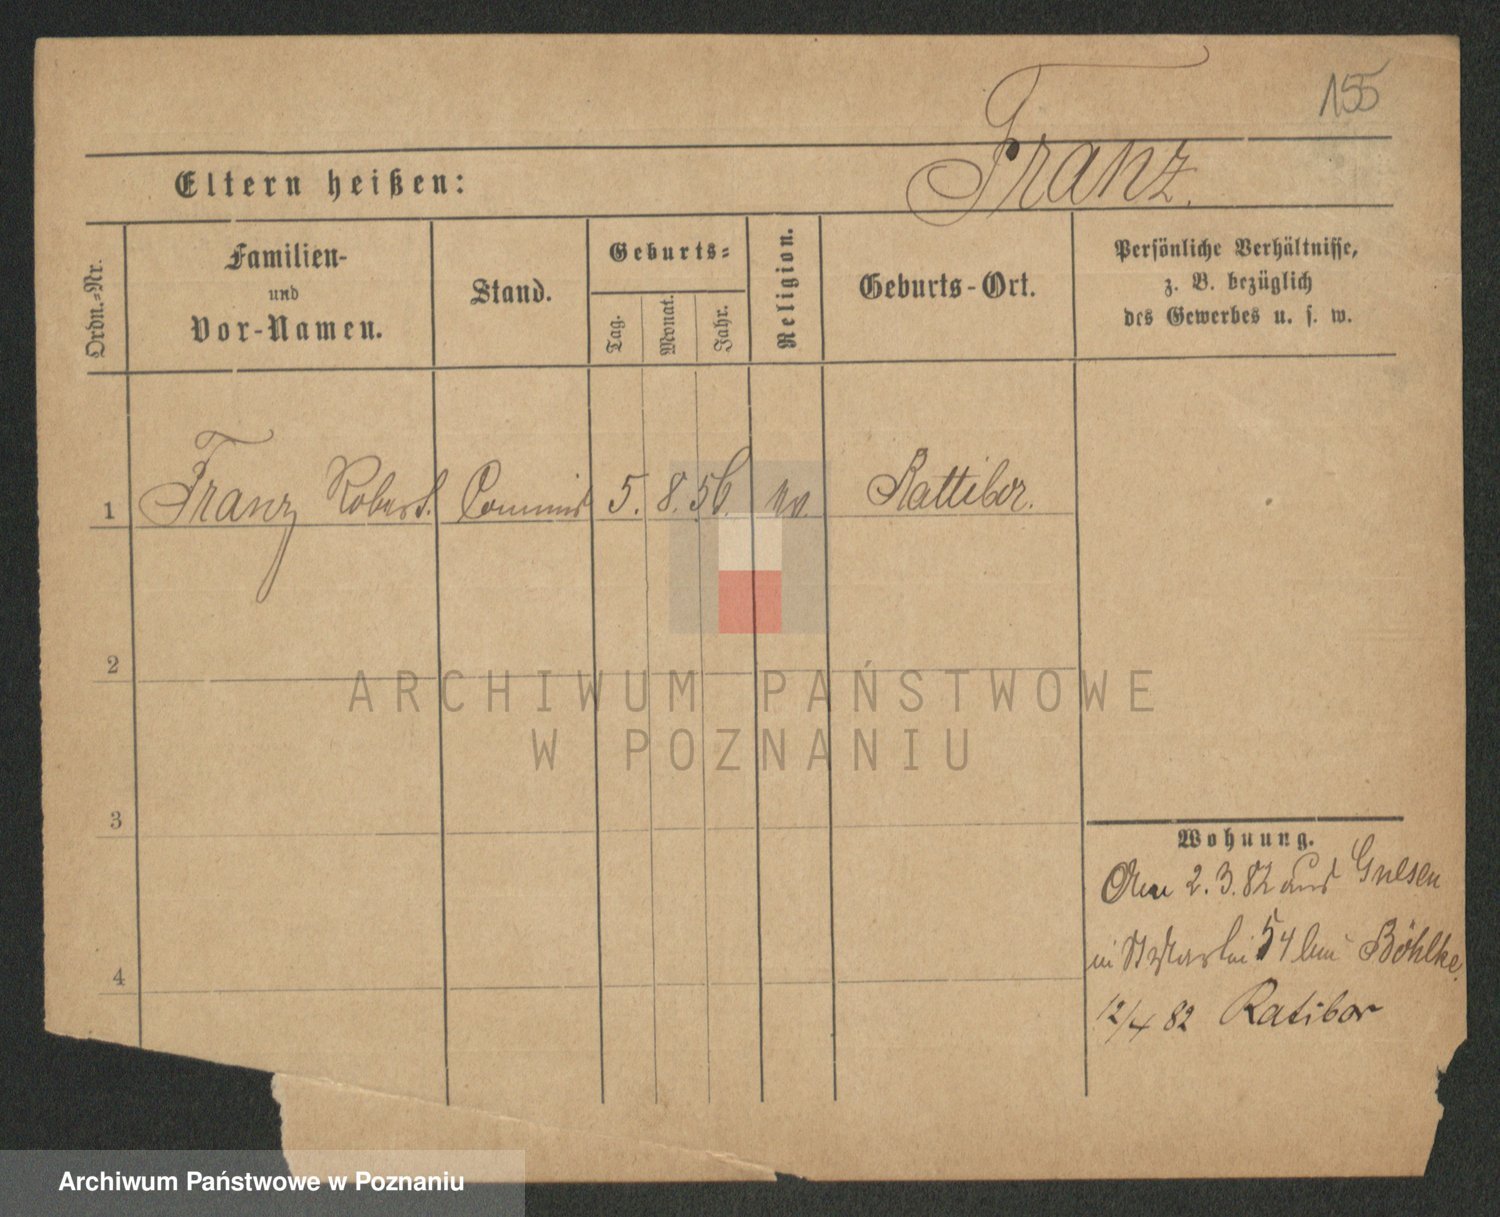 155
Franz.
Eltern heißen:
Ordn.-Nr.
Familien-
und
Vor-Namen.
Stand.
Geburts-
Tag.
Monat.
Jahr.
Religion.
Geburts-Ort.
Persönliche Verhältnisse,
z. B. bezüglich
des Gewerbes u. s. w.
1 Franz Robert. Commis 5. 8. 56. ev. Rattibor.
2
3
4
Wohnung.
Am 2. 3. 82 aus Gnesen
in St Martin 54 bei Böhlke.
12/4 82 Ratibor
ARCHIWUM PAŃSTWOWE
W POZNANIU
Archiwum Państwowe w Poznaniu